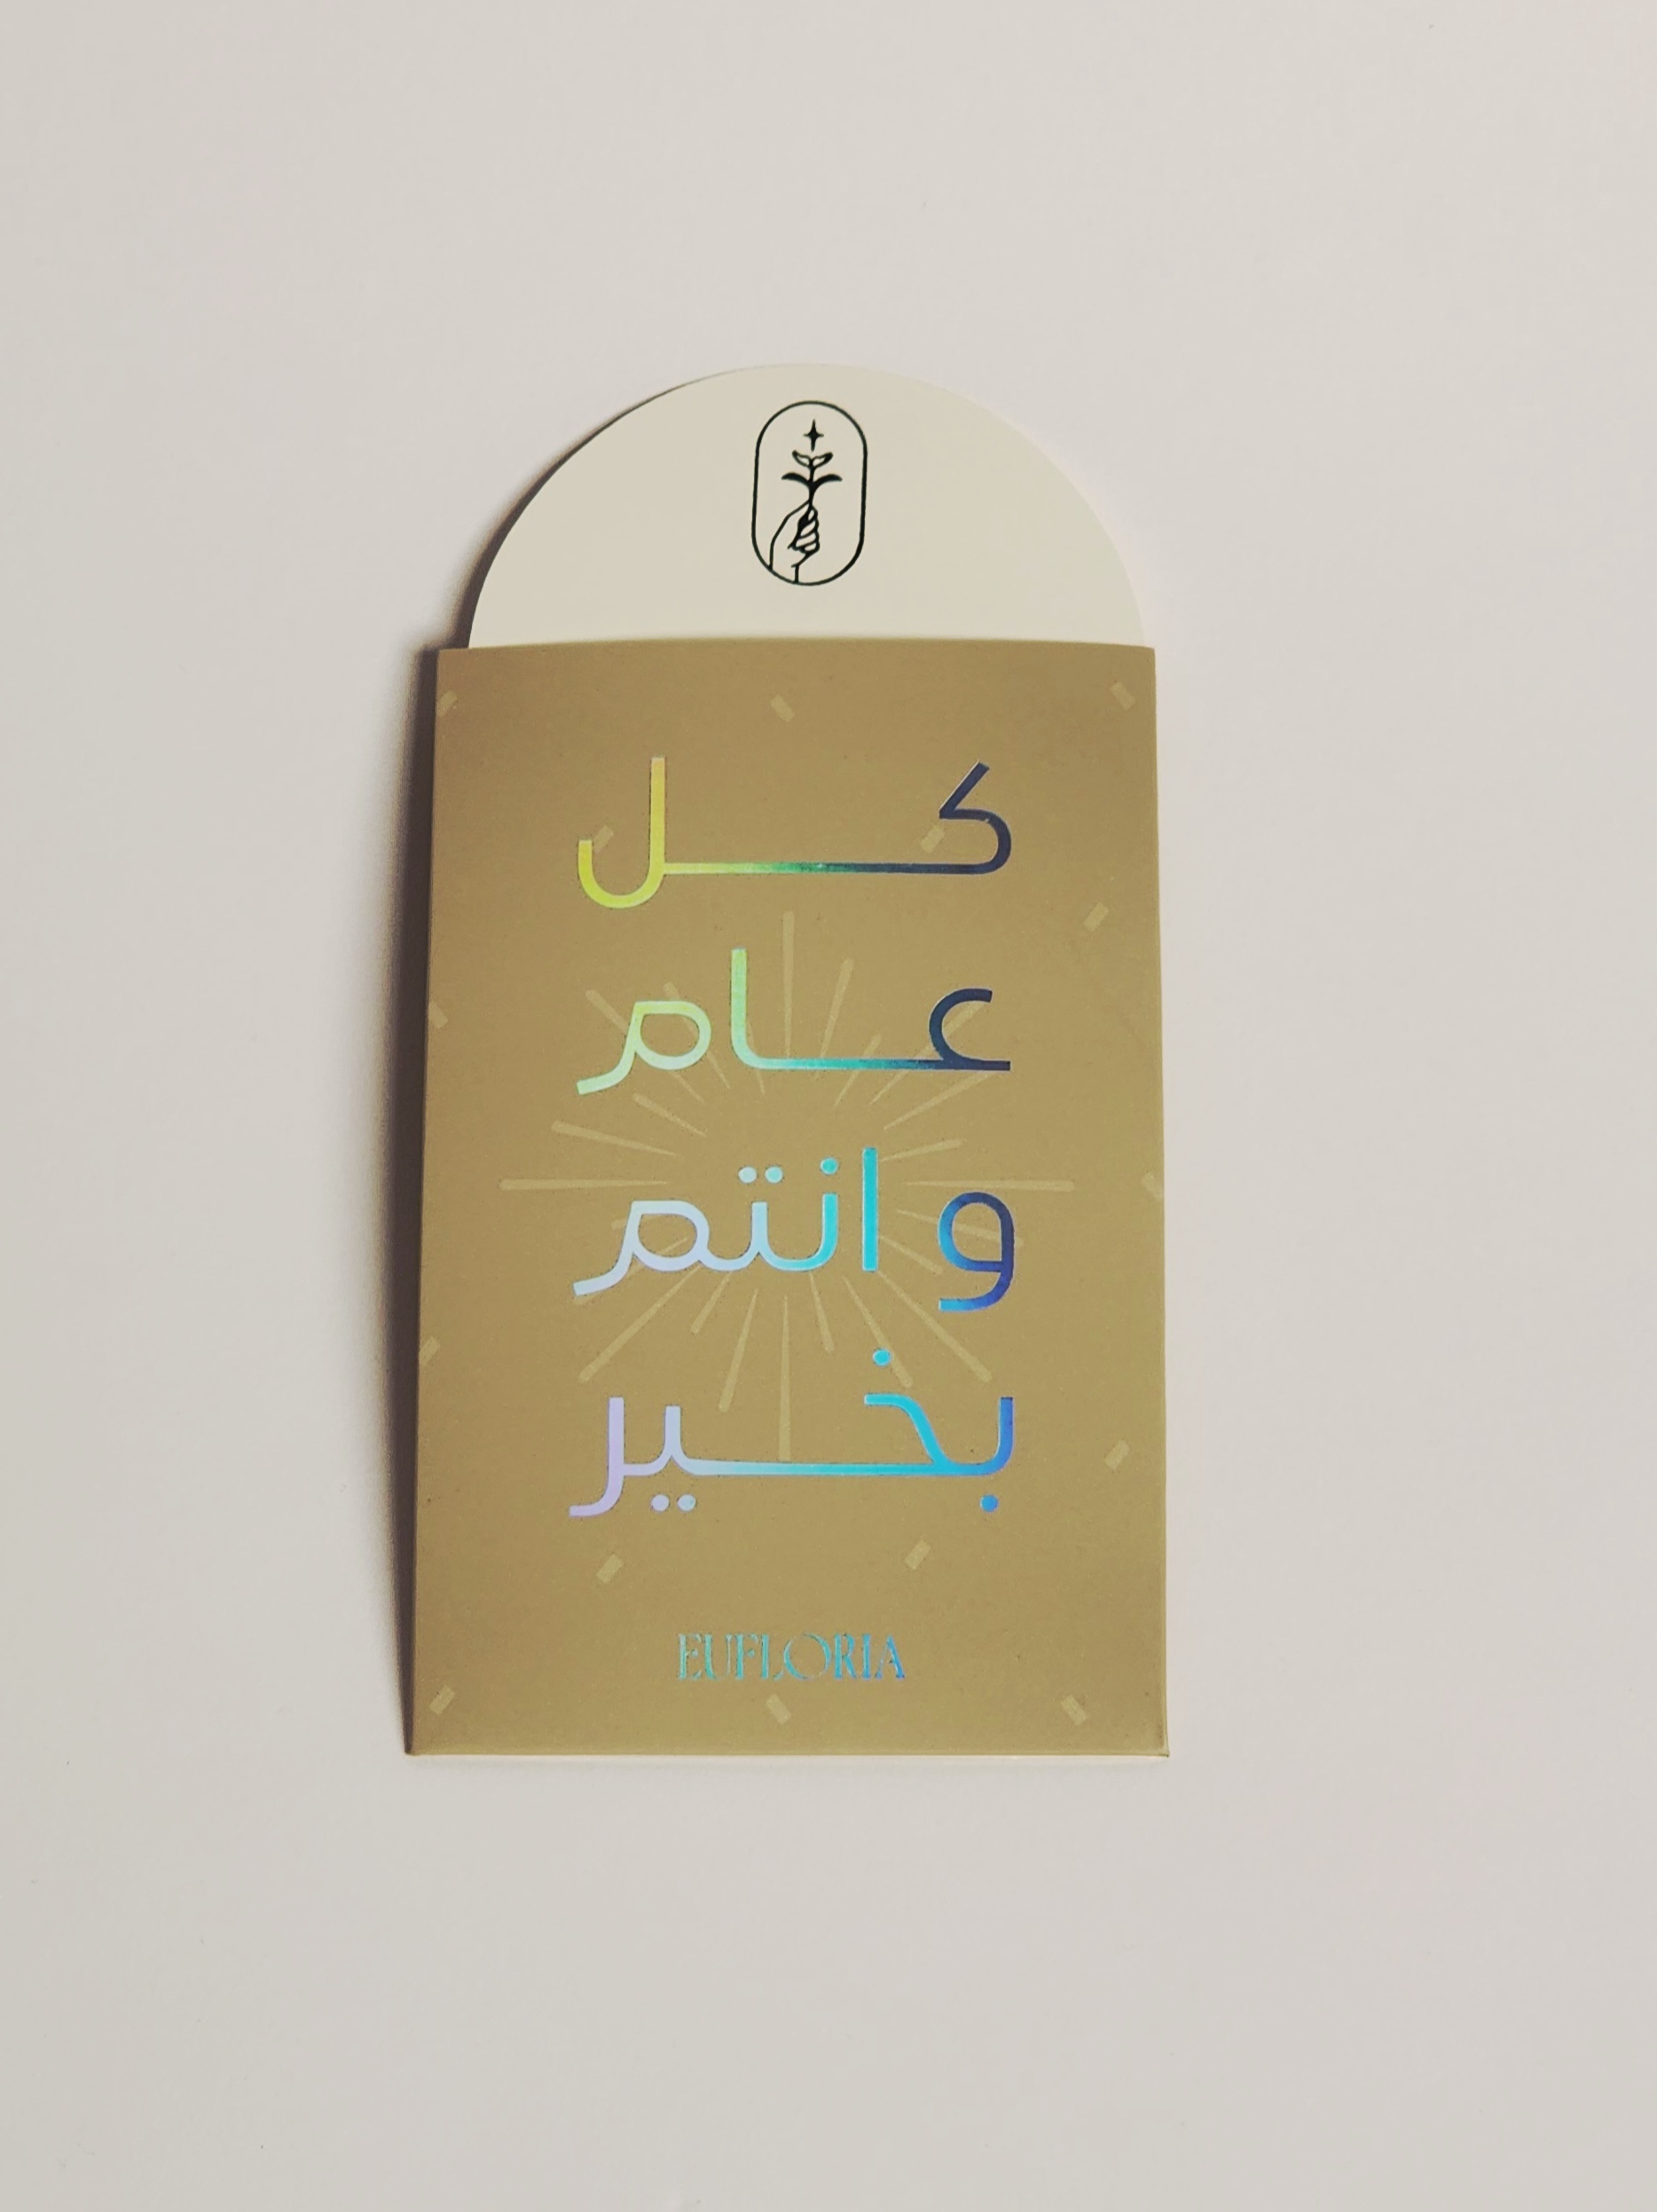 كل
عام
و انتم
بخير
EUFLORIA